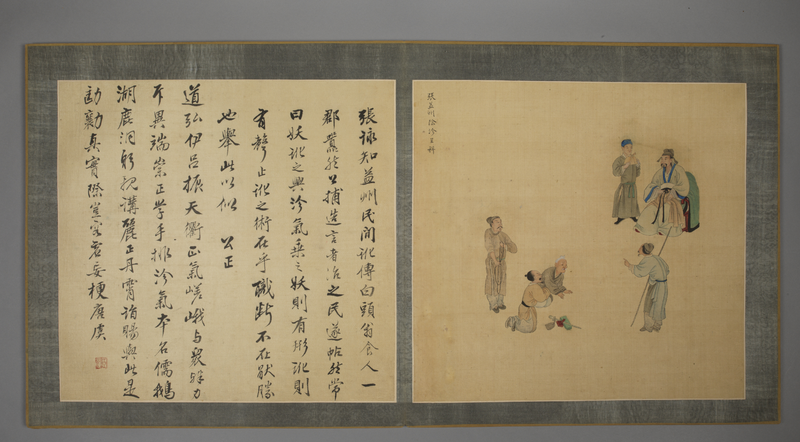 張益州除沴
張詠知益州民間訛傳白頭翁食人一
郡囂然公捕造言者治之民遂帖然常
曰妖訛之興沴氣乘之妖則有形訛則
有聲止訛之術在乎職斷不在厭勝
也舉此以似 公正
道弘伊呂振天衢正氣嵯峨與眾殊力
斥異端崇正學手排沴氣本名儒鵝
湖鹿洞躬親講麗正丹霄賜與此是
真實際豈容妄梗唐虞